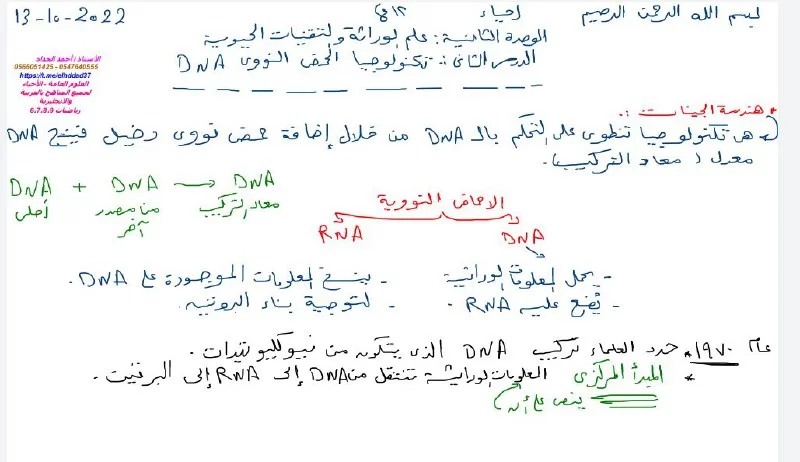 بسم الله الرحمن الرحيم
أحياء ١٢ ع
13-10-2022
الوحدة الثانية: علم الوراثة والتقنيات الحيوية
الدرس الثاني: تكنولوجيا الحمض النووي DNA
الأستاذ / أحمد الحداد
0566051425 - 0547640555
العلوم العامة - الأحياء
لجميع المناهج بالعربية
والانجليزية
رياضيات 6.7.8.9
* هندسة الجينات :.
هي تكنولوجيا تنطوي على التحكم بالـ DNA من خلال إضافة حمض نووي دخيل فينتج DNA
معدل (معاد التركيب).
DNA + DNA → DNA
أصلي من مصدر آخر معاد التركيب
الاحماض النووية
RNA DNA
- يحمل المعلومات الوراثية
- يُصنع عليه RNA.
- ينسخ المعلومات الموجودة على DNA.
- لتوجيه بناء البروتينه
عام ١٩٧٠ * حدد العلماء تركيب DNA الذي يتكون من نيوكليوتيدات.
* المبدأ المركزي المعلومات الوراثية تنتقل من DNA إلى RNA إلى البروتين.
ينص على أن